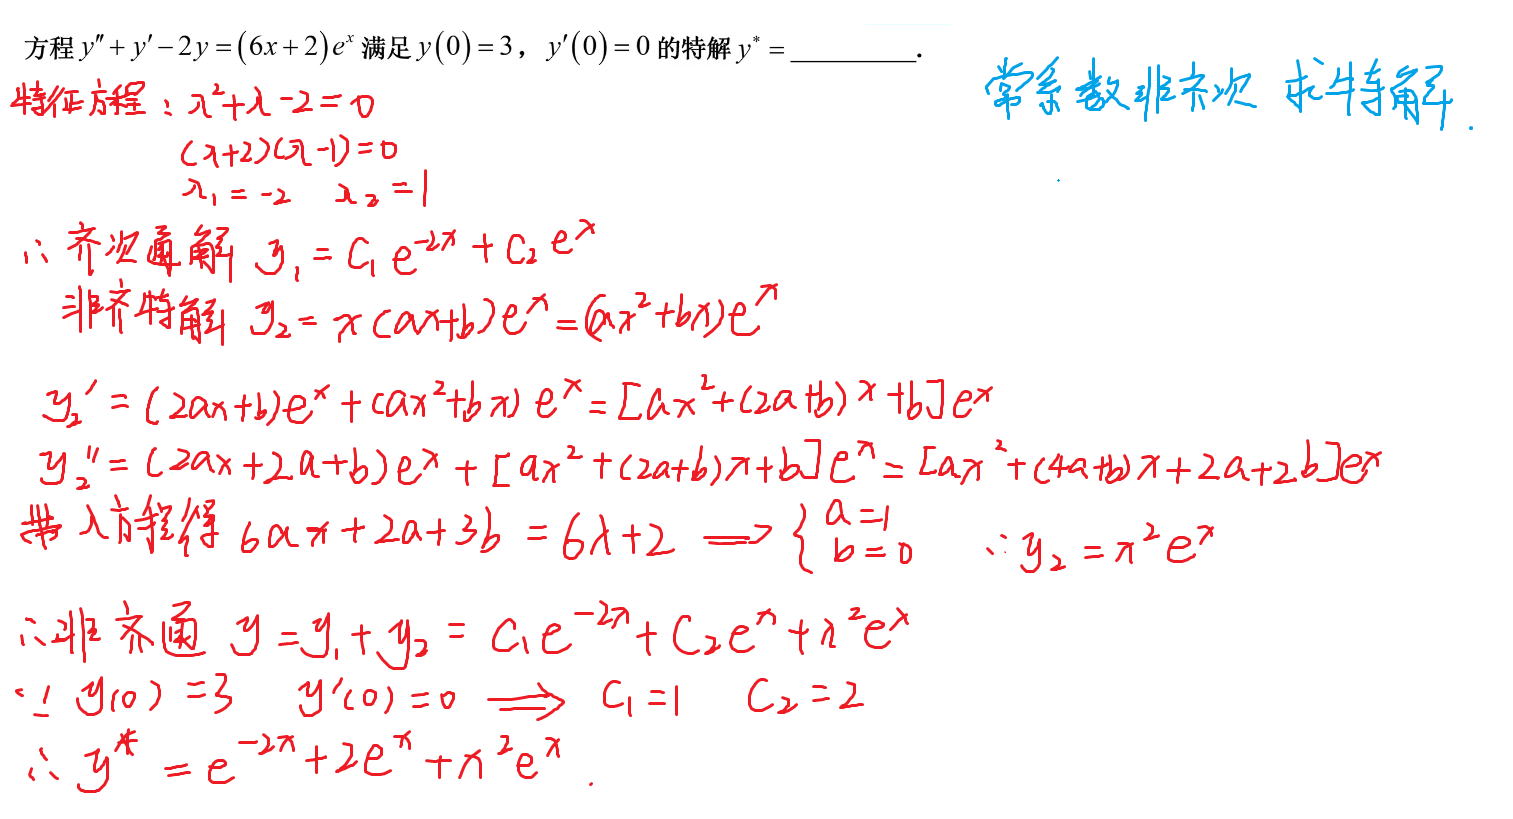 方程 y″ + y′ − 2y = (6x + 2)eˣ 满足 y(0) = 3，y′(0) = 0 的特解 y* = ________．
常系数非齐次 求特解.
特征方程：λ²+λ-2=0
(λ+2)(λ-1)=0
λ₁=-2 λ₂=1
∴ 齐次通解 y₁=C₁e⁻²ˣ+C₂eˣ
非齐特解 y₂=x(ax+b)eˣ=(ax²+bx)eˣ
y₂′=(2ax+b)eˣ+(ax²+bx)eˣ=[ax²+(2a+b)x+b]eˣ
y₂″=(2ax+2a+b)eˣ+[ax²+(2a+b)x+b]eˣ=[ax²+(4a+b)x+2a+2b]eˣ
带入方程得 6ax+2a+3b=6x+2 ⟹ { a=1 b=0 ∴y₂=x²eˣ
∴非齐通 y=y₁+y₂=C₁e⁻²ˣ+C₂eˣ+x²eˣ
∵ y(0)=3 y′(0)=0 ⟹ C₁=1 C₂=2
∴ y*=e⁻²ˣ+2eˣ+x²eˣ.